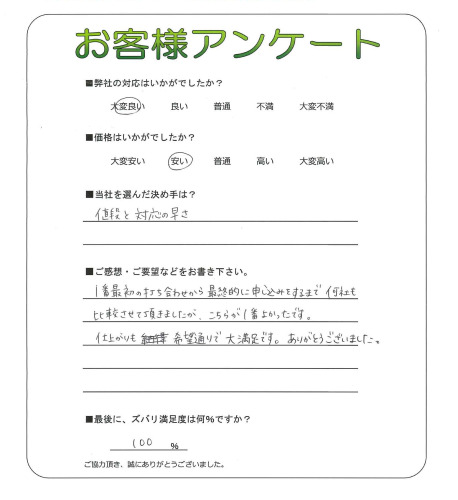 お客様アンケート
■弊社の対応はいかがでしたか？
大変良い 良い 普通 不満 大変不満
■価格はいかがでしたか？
大変安い 安い 普通 高い 大変高い
■当社を選んだ決め手は？
値段と対応の早さ
■ご感想・ご要望などをお書き下さい。
1番最初の打ち合わせから最終的に申込みをするまで何社も
比較させて頂きましたが、こちらが1番よかったです。
仕上がりも 希望通りで大満足です。ありがとうございました。
■最後に、ズバリ満足度は何％ですか？
100 ％
ご協力頂き、誠にありがとうございました。